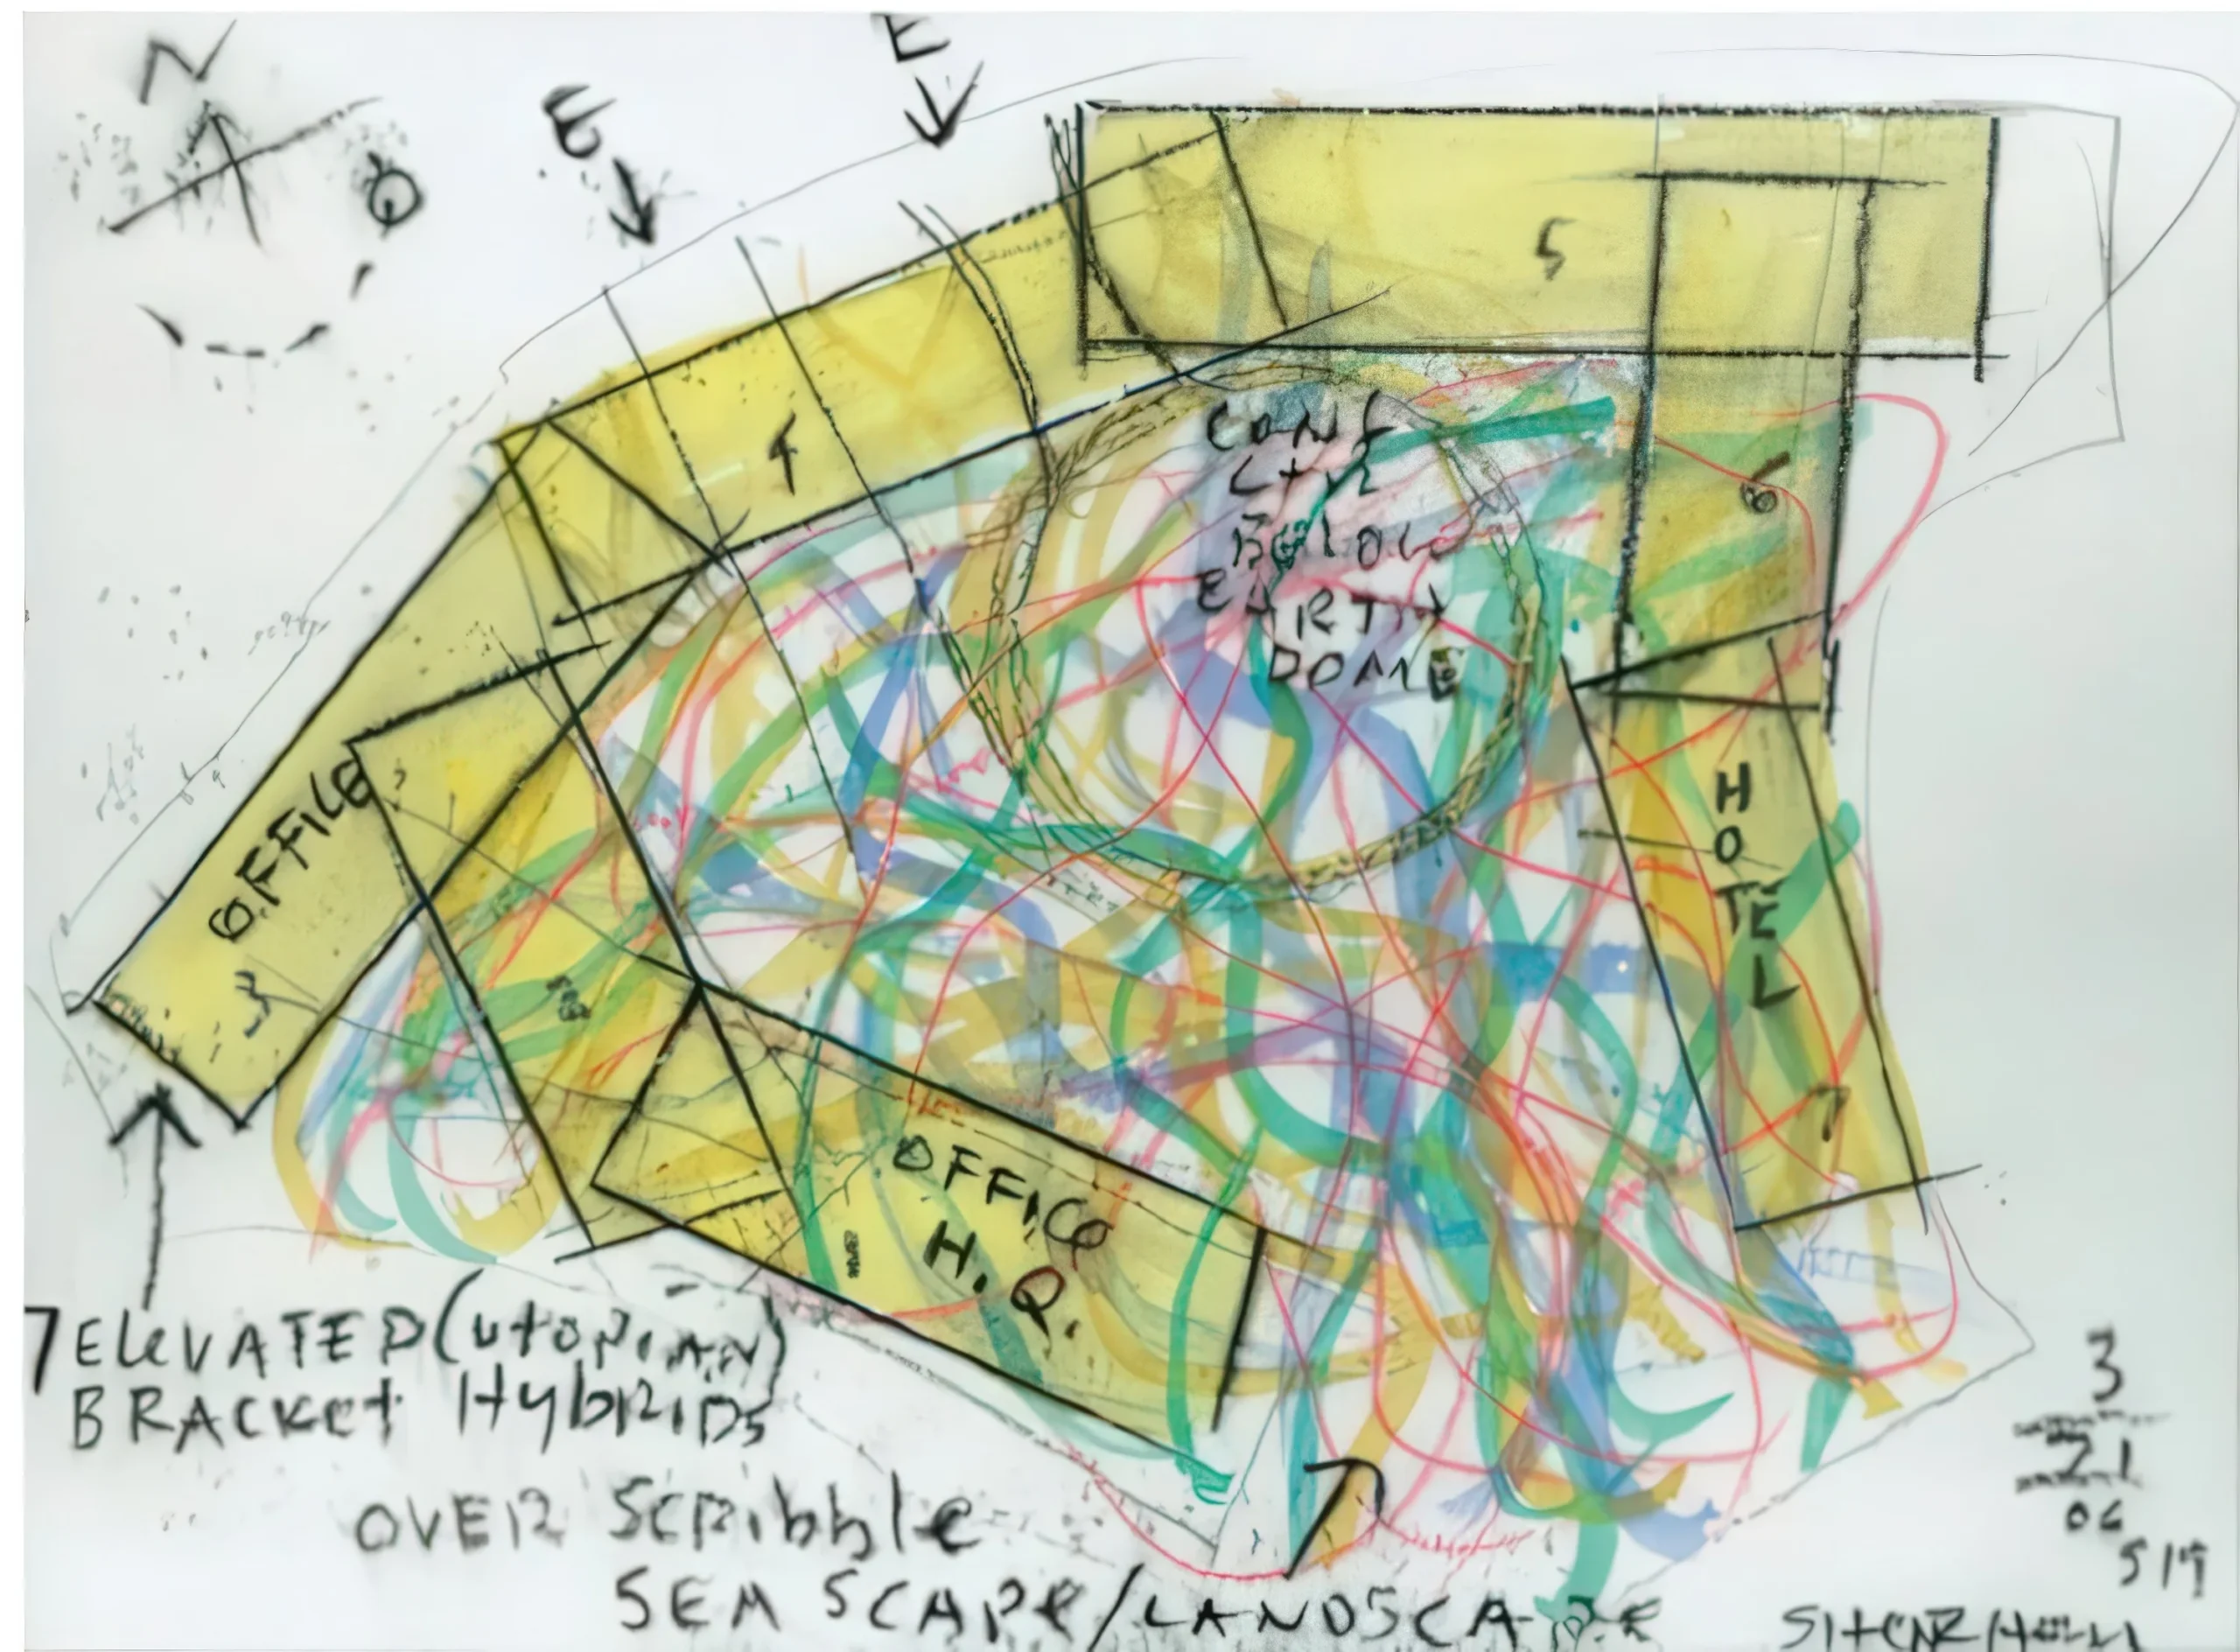 N
E
E
5
4
CONF
CTR
BELOW
EARTH
DOME
6
OFFICE
3
HOTEL
7
OFFICE
H.Q.
7 ELEVATED (utopian)
BRACKET HybRIDS
OVER Scribble
SEA SCAPE/LANDSCAPE
3
21
06